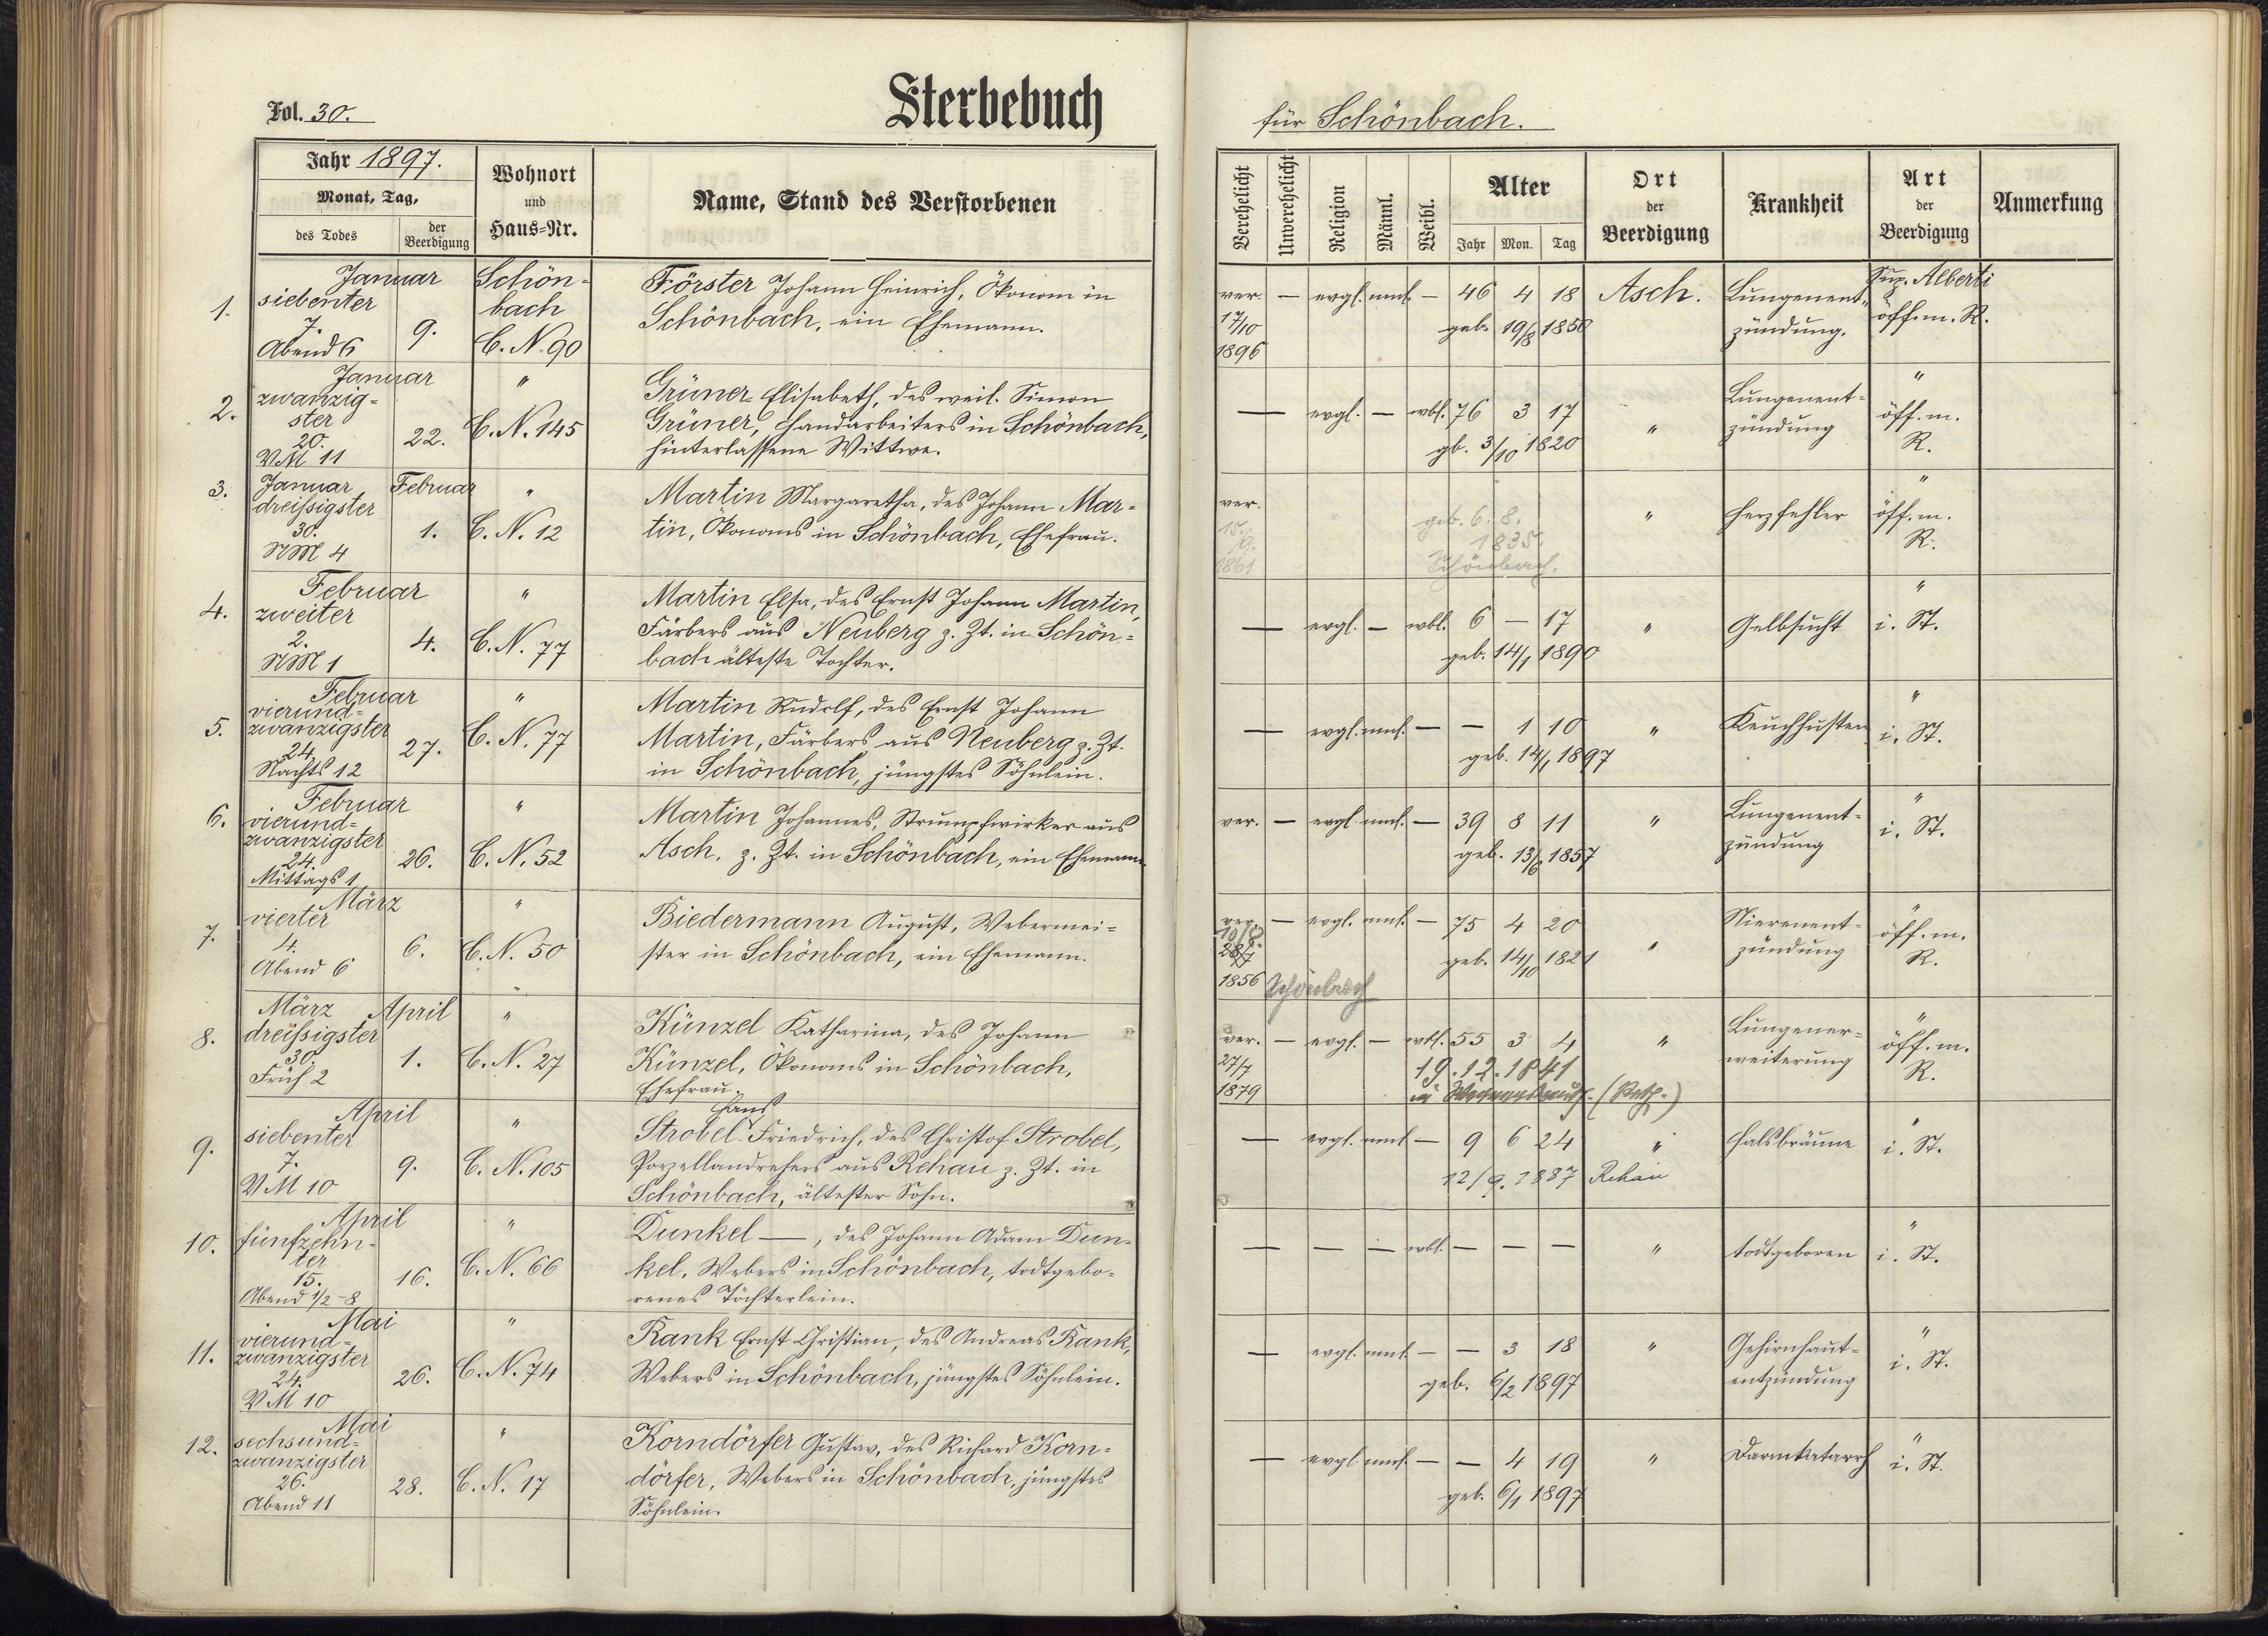 Fol. 30.
Sterbebuch
für Schönbach.
Jahr 1897.
Monat, Tag,
des Todes
der Beerdigung
Wohnort
und
Haus-Nr.
Name, Stand des Verstorbenen
Verehelicht
Unverehelicht
Religion
Männl.
Weibl.
Alter
Jahr Mon. Tag
Ort
der
Beerdigung
Krankheit
Art
der
Beerdigung
Anmerkung
1.
Januar
siebenter
7.
Abend 6
9.
Schön-
bach
C. N. 90
Förster Johann Heinrich, Ökonom in
Schönbach, ein Ehemann.
ver. — evgl. mnl. — 46 4 18 Asch.
17/10
1896
geb. 19/8 1850
Lungenent-
zündung.
Sup. Alberti
öff. m. R.
2.
Januar
zwanzig-
ster
20.
VM 11
22.
"
C. N. 145
Grüner Elisabeth, des weil. Simon
Grüner, Handarbeiters in Schönbach,
hinterlassene Wittwe.
— evgl. — wbl. 76 3 17 "
gb. 3/10 1820
Lungenent-
zündung
"
öff. m.
R.
3.
Januar Februar
dreißigster
30.
NM 4
1.
"
C. N. 12
Martin Margaretha, des Johann Mar-
tin, Ökonoms in Schönbach, Ehefrau.
ver.
15.
/9.
1861
geb. 6. 8.
1835.
Schönbach.
"
Herzfehler
"
öff. m.
R.
4.
Februar
zweiter
2.
NM 1
4.
"
C. N. 77
Martin Elsa, des Ernst Johann Martin,
Färbers aus Neuberg z. Zt. in Schön-
bach älteste Tochter.
— evgl. — wbl. 6 — 17 "
geb. 14/1 1890
Gelbsucht
"
i. St.
5.
Februar
vierund-
zwanzigster
24.
Nachts 12
27.
"
C. N. 77
Martin Rudolf, des Ernst Johann
Martin, Färbers aus Neuberg z. Zt.
in Schönbach, jüngstes Söhnlein.
— evgl. mnl. — — 1 10 "
geb. 14/1 1897
Keuchhusten
"
i. St.
6.
Februar
vierund-
zwanzigster
24.
Mittags 1
26.
"
C. N. 52
Martin Johannes, Strumpfwirker aus
Asch, z. Zt. in Schönbach, ein Ehemann.
ver. — evgl. mnl. — 39 8 11 "
geb. 13/6 1857
Lungenent-
zündung
"
i. St.
7.
März
vierter
4.
Abend 6
6.
"
C. N. 50
Biedermann August, Webermei-
ster in Schönbach, ein Ehemann.
ver. — evgl. mnl. — 75 4 20 "
28/7
1856 Schönbach
geb. 14/10 1821
Nierenent-
zündung
"
öff. m.
R.
8.
März April
dreißigster
30.
Früh 2
1.
"
C. N. 27
Künzel Katharina, des Johann
Künzel, Ökonoms in Schönbach,
Ehefrau.
ver. — evgl. — wbl. 55 3 4 "
27/7
1879
19. 12. 1841
in
Lungener-
weiterung
"
öff. m.
R.
9.
April
siebenter
7.
VM 10
9.
"
C. N. 105
Hans
Strobel Friedrich, des Christof Strobel,
Porzellandrehers aus Rehau z. Zt. in
Schönbach, ältester Sohn.
— evgl. mnl. — 9 6 24 "
12/9. 1887 Rehau
Halsbräune
"
i. St.
10.
April
fünfzehn-
ter
15.
Abend 1/2-8
16.
"
C. N. 66
Dunkel —, des Johann Adam Dun-
kel, Webers in Schönbach, todtgebo-
renes Töchterlein.
— — — wbl. — — — "
todtgeboren
"
i. St.
11.
Mai
vierund-
zwanzigster
24.
VM 10
26.
"
C. N. 74
Rank Ernst Christian, des Andreas Rank,
Webers in Schönbach, jüngstes Söhnlein.
— evgl. mnl. — — 3 18 "
geb. 6/2 1897
Gehirnhaut-
entzündung
"
i. St.
12.
Mai
sechsund-
zwanzigster
26.
Abend 11
28.
"
C. N. 17
Korndörfer Gustav, des Richard Korn-
dörfer, Webers in Schönbach, jüngstes
Söhnlein.
— evgl. mnl. — — 4 19 "
geb. 6/1 1897
Darmkatarrh
"
i. St.